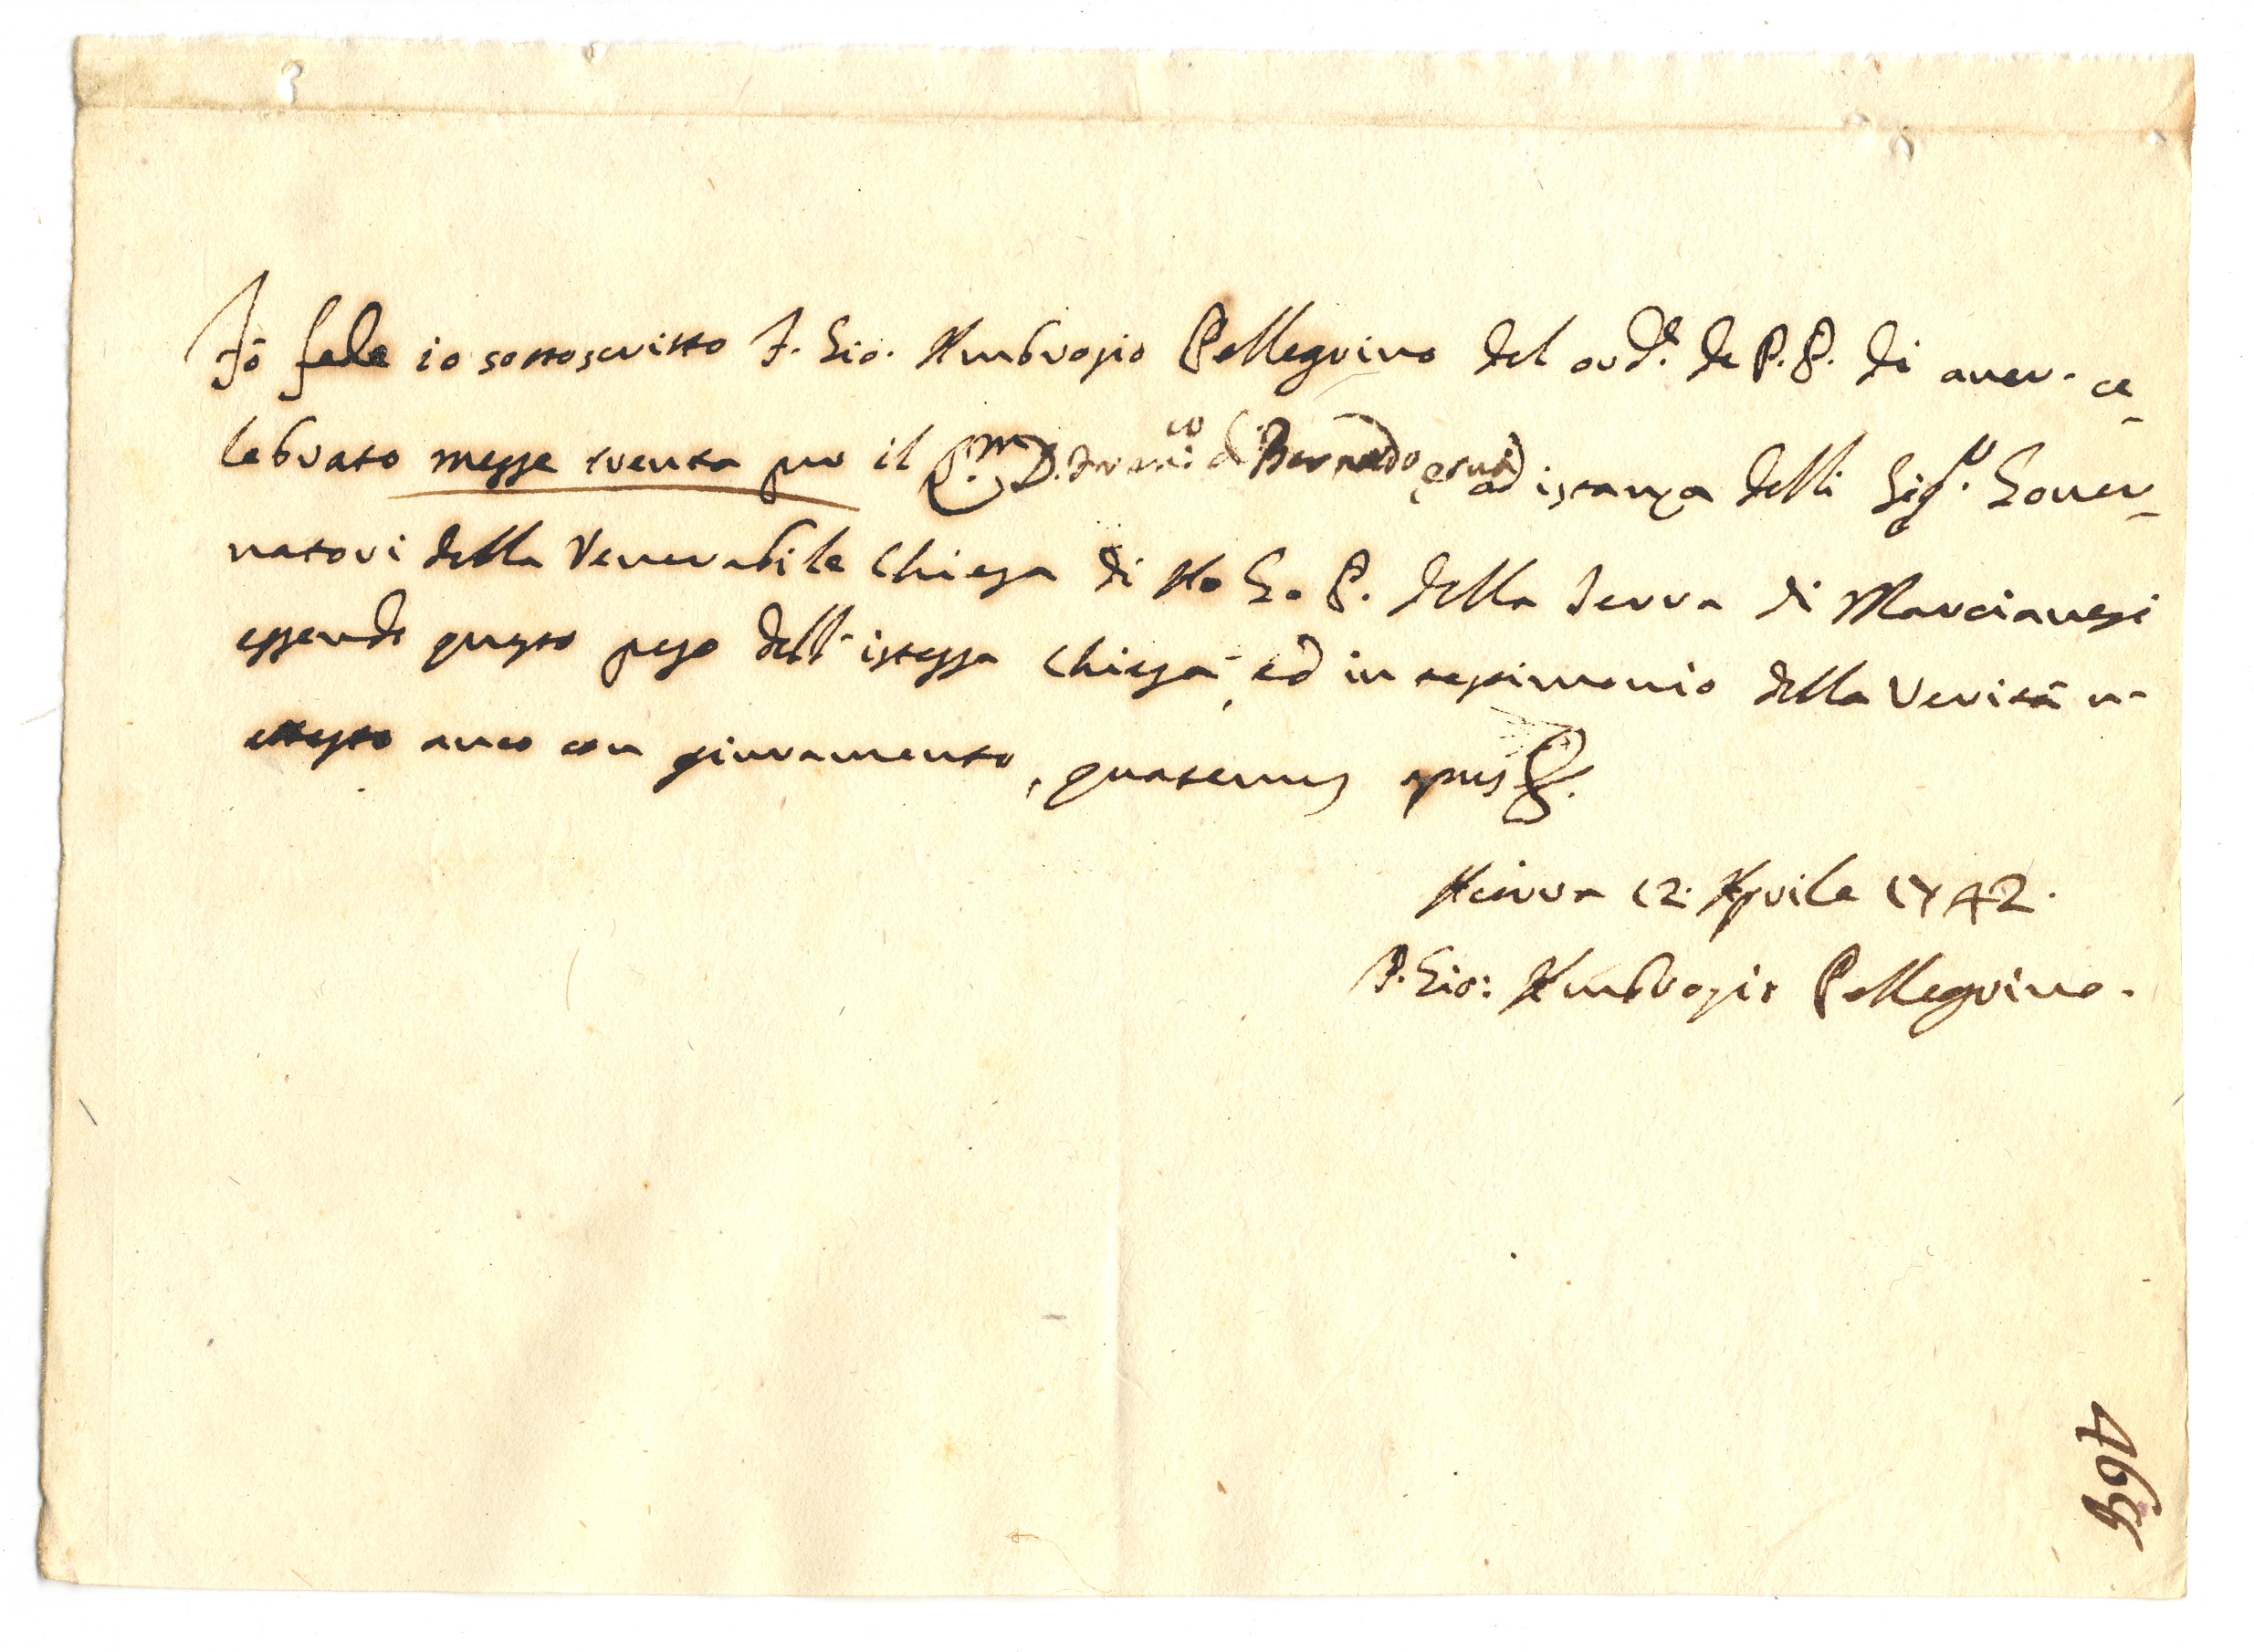 Fò fede io sottoscritto F. Gio. Ambrosio Pellegrino del ord.e de P.P. di aver ce-
lebrato messe trenta per il D. Fran.co di Bernardo ad istanza delli Sig.ri Gover-
natori della Venerabile Chiesa di A. G. P. della Terra di Marcianesi
essendo questo peso dell'istessa Chiesa, ed in testimonio della verità n'
attesto anco con giuramento, quatenus opus
Aversa 12. Aprile 1742.
F. Gio: Ambrosio Pellegrino.
465